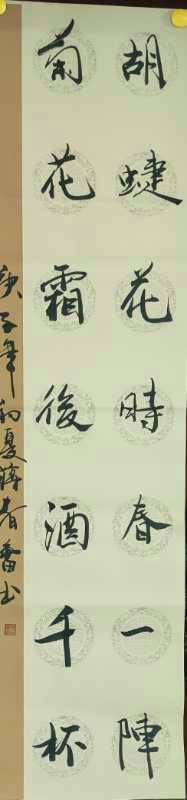 胡蝶花時春一陣
菊花霜後酒千杯
庚子年初夏蔣春雷书